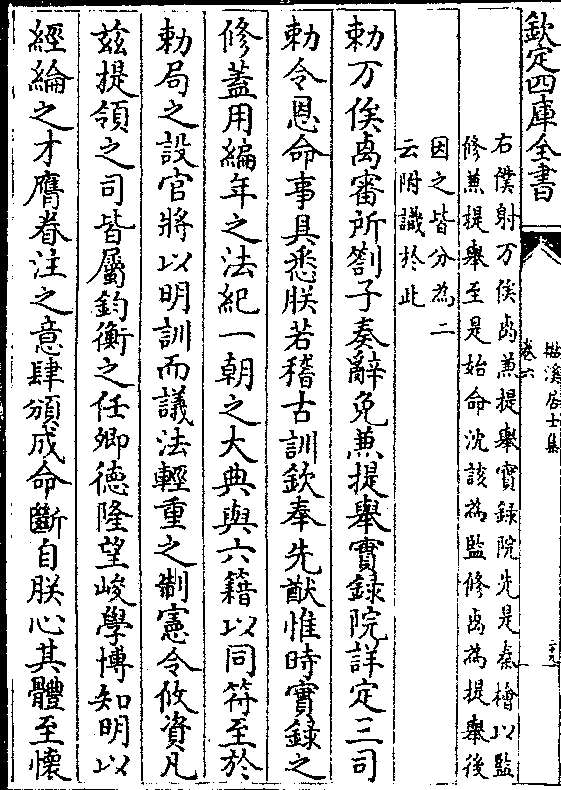 欽定四庫全書
檆溪居士集
卷六
二十九
右僕射万俟卨兼提舉實録院先是秦檜以監
修兼提舉至是始命沈該為監修卨為提舉後
因之皆分為二
云附識於此
勅万俟卨審所劄子奏辭免兼提舉實録院詳定三司
勅令恩命事具悉朕若稽古訓欽奉先猷惟時實録之
修蓋用編年之法紀一朝之大典與六籍以同符至於
勅局之設官將以明訓而議法輕重之制憲令攸資凡
兹提領之司皆屬鈞衡之任卿德隆望峻學博知明以
經綸之才膺眷注之意肆頒成命斷自朕心其體至懷